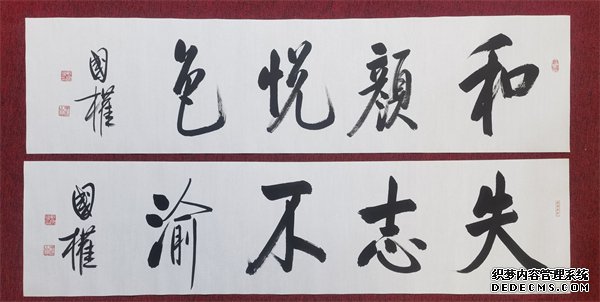 和顔悦色
國權
失志不渝
國權
织梦内容管理系统
DEDECMS.COM